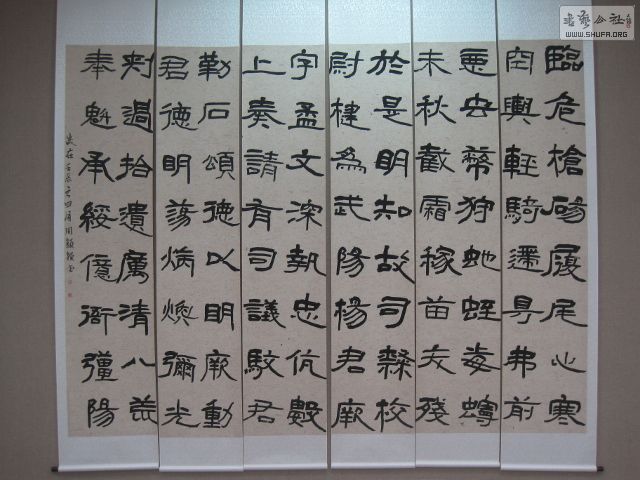 臨危槍碭履尾心寒
空輿輕騎遰㝵弗前
惡虫幣狩虵蛭毒蟃
未秋截霜稼苗夭殘
於是明知故司隸校
尉楗為武陽楊君厥
字孟文深執忠伉數
上奏請有司議駮君
勒石頌德以明厥勳
君德明蕩炳煥彌光
刺過拾遺厲清八荒
奉魁承綏億衙彊陽
歲在壬辰
書藝公社
WWW.SHUFA.ORG